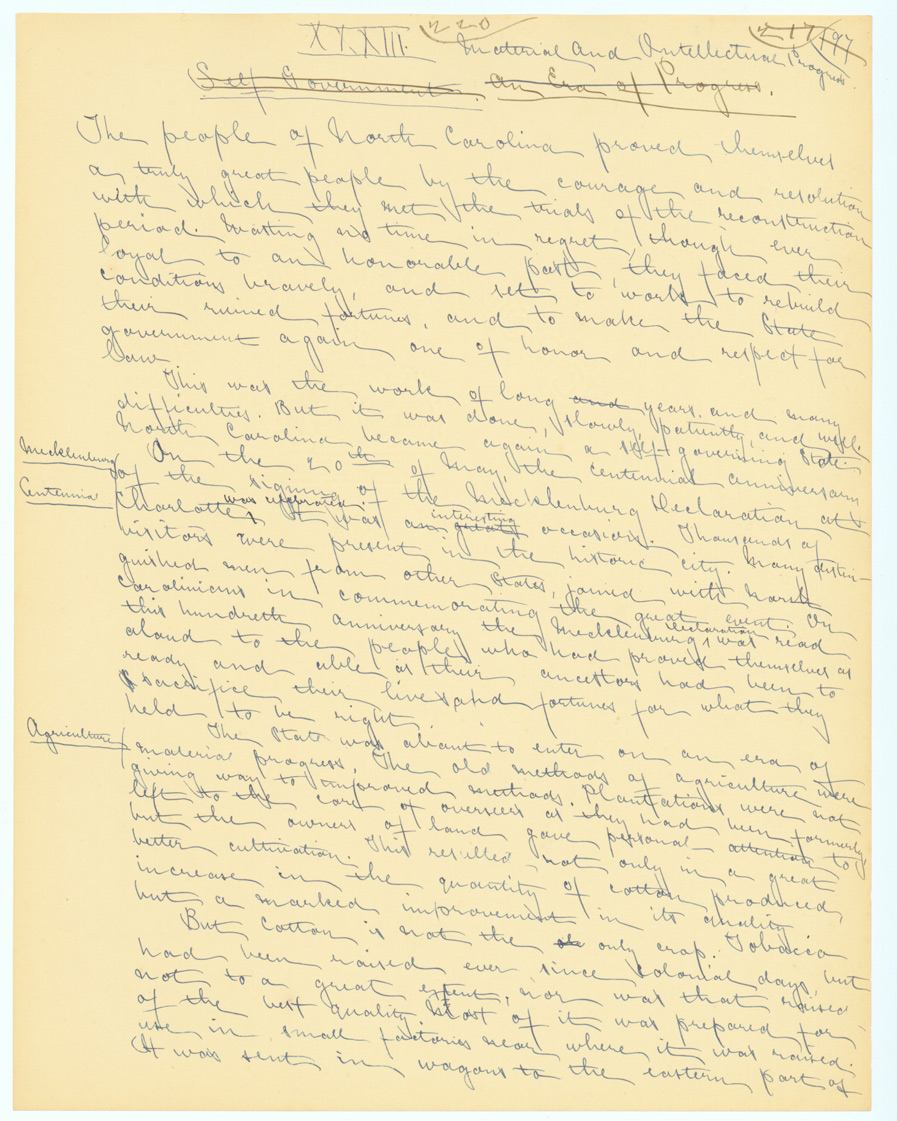 XXXIII. 220 217 197
Material and Intellectual Progress.
Self Government. An Era of Progress.
The people of North Carolina proved themselves
a truly great people by the courage and resolution
with which they met the trials of the reconstruction
period. Wasting no time in regret, though ever
loyal to an honorable past, they faced their
conditions bravely, and set to work to rebuild
their ruined fortunes, and to make the State
government again one of honor and respect for
law.
This was the work of long and years and many
difficulties. But it was done, slowly, patiently, and well.
North Carolina became again a self-governing State.
Mecklenburg
Centennial
On the 20th of May, the centennial anniversary
of the signing of the Mecklenburg Declaration at
Charlotte, was celebrated. It was an great interesting occasion. Thousands of
visitors were present in the historic city. Many distin-
guished men from other States, joined with North
Carolinians in commemorating the great event. On
this hundredth anniversary the Mecklenburg declaration was read
aloud to the people who had proved themselves as
ready and able as their ancestors had been to
sacrifice their lives and fortunes for what they
held to be right.
Agriculture
The State was about to enter on an era of
material progress. The old methods of agriculture were
giving way to improved methods. Plantations were not
left to the care of overseers as they had been formerly
but the owners of land gave personal attention to
better cultivation. This resulted not only in a great
increase in the quantity of cotton produced,
but a marked improvement in its quality
But Cotton is not the only crop. Tobacco
had been raised ever since colonial days, but
not to a great extent, nor was that raised
of the best quality. Most of it was prepared for
use in small factories near where it was raised.
It was sent in wagons to the eastern part of